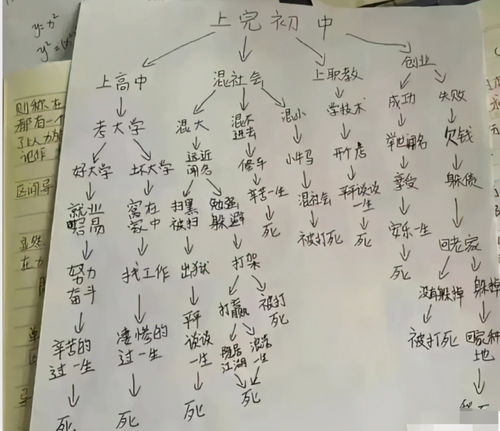 y=x²
上完初中
上高中
混社会
上职教
创业
考大学
混大
混不进去
混小
学技术
成功
失败
好大学
坏大学
远近闻名
修车
小牛马
开个店
举世闻名
欠钱
就业容易
窝在家中
扫黑被扫
勉强躲避
辛苦一生
混社会
平平谈谈一生
享受
躲债
努力奋斗
找工作
出狱
打架
死
被打死
死
安乐一生
回老家
打赢
被打死
死
没有躲掉
躲掉
辛苦的过一生
凄惨的过一生
平平谈谈一生
隐居江湖
浪荡一生
被打死
回家种地
死
死
死
死
则称在
都有一个
区间